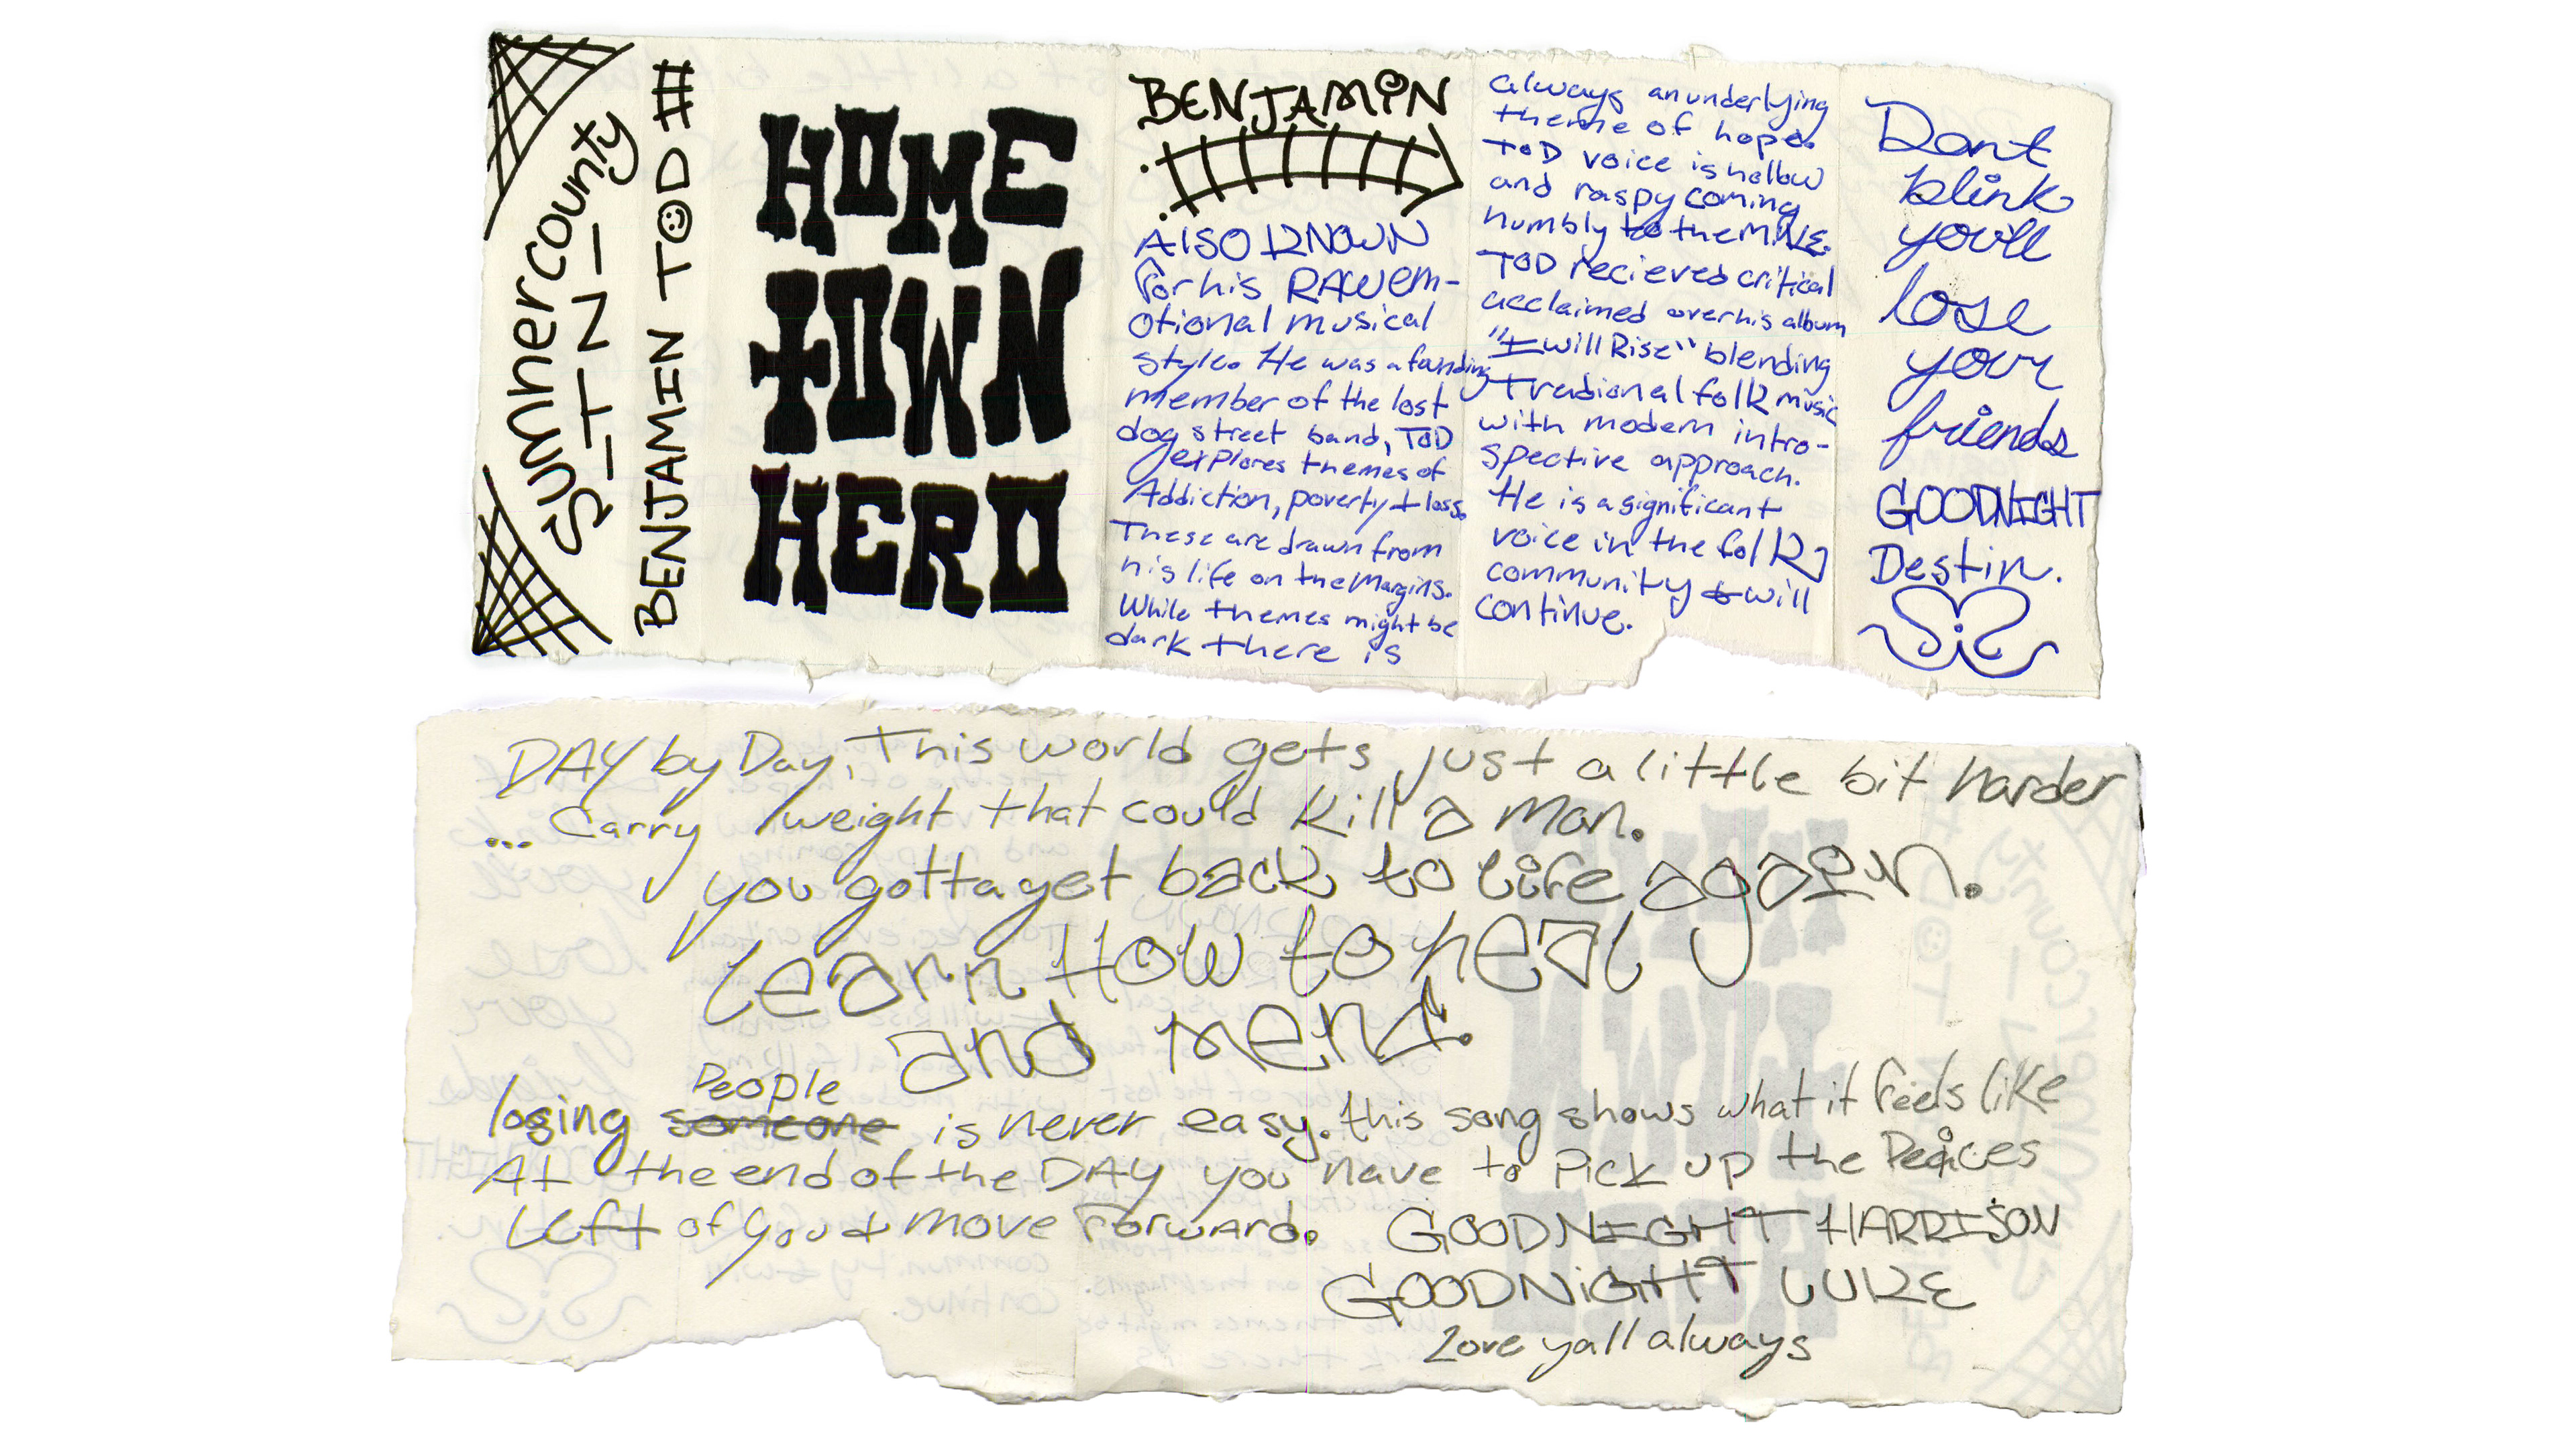 Sumner county
-T-N-
BENJAMIN TOD #
HOME
TOWN
HERO
BENJAMIN
Also KNOWN
for his RAW em-
otional musical
style. He was a founding
member of the lost
dog street band, TOD
explores themes of
Addiction, poverty + loss.
These are drawn from
his life on the Margins.
While themes might be
dark there is
always an underlying
theme of hope.
TOD voice is hollow
and raspy coming
humbly to the MIKE.
TOD recieved critical
acclaimed over his album
"I will Rise" blending
tradional folk music
with modern intro-
spective approach.
He is a significant
voice in the folk
community & will
continue.
Dont
blink
you'll
lose
your
friends
GOODNIGHT
Destin.
DAY by Day, This world gets just a little bit harder
... Carry weight that could kill a man.
you gotta get back to life again.
Learn How to heal
and mend.
People
losing someone is never easy. this song shows what it feels like
At the end of the DAY you have to Pick up the Peices
left of you & move forward. GOODNIGHT HARRISON
GOODNIGHT LUKE
Love yall always